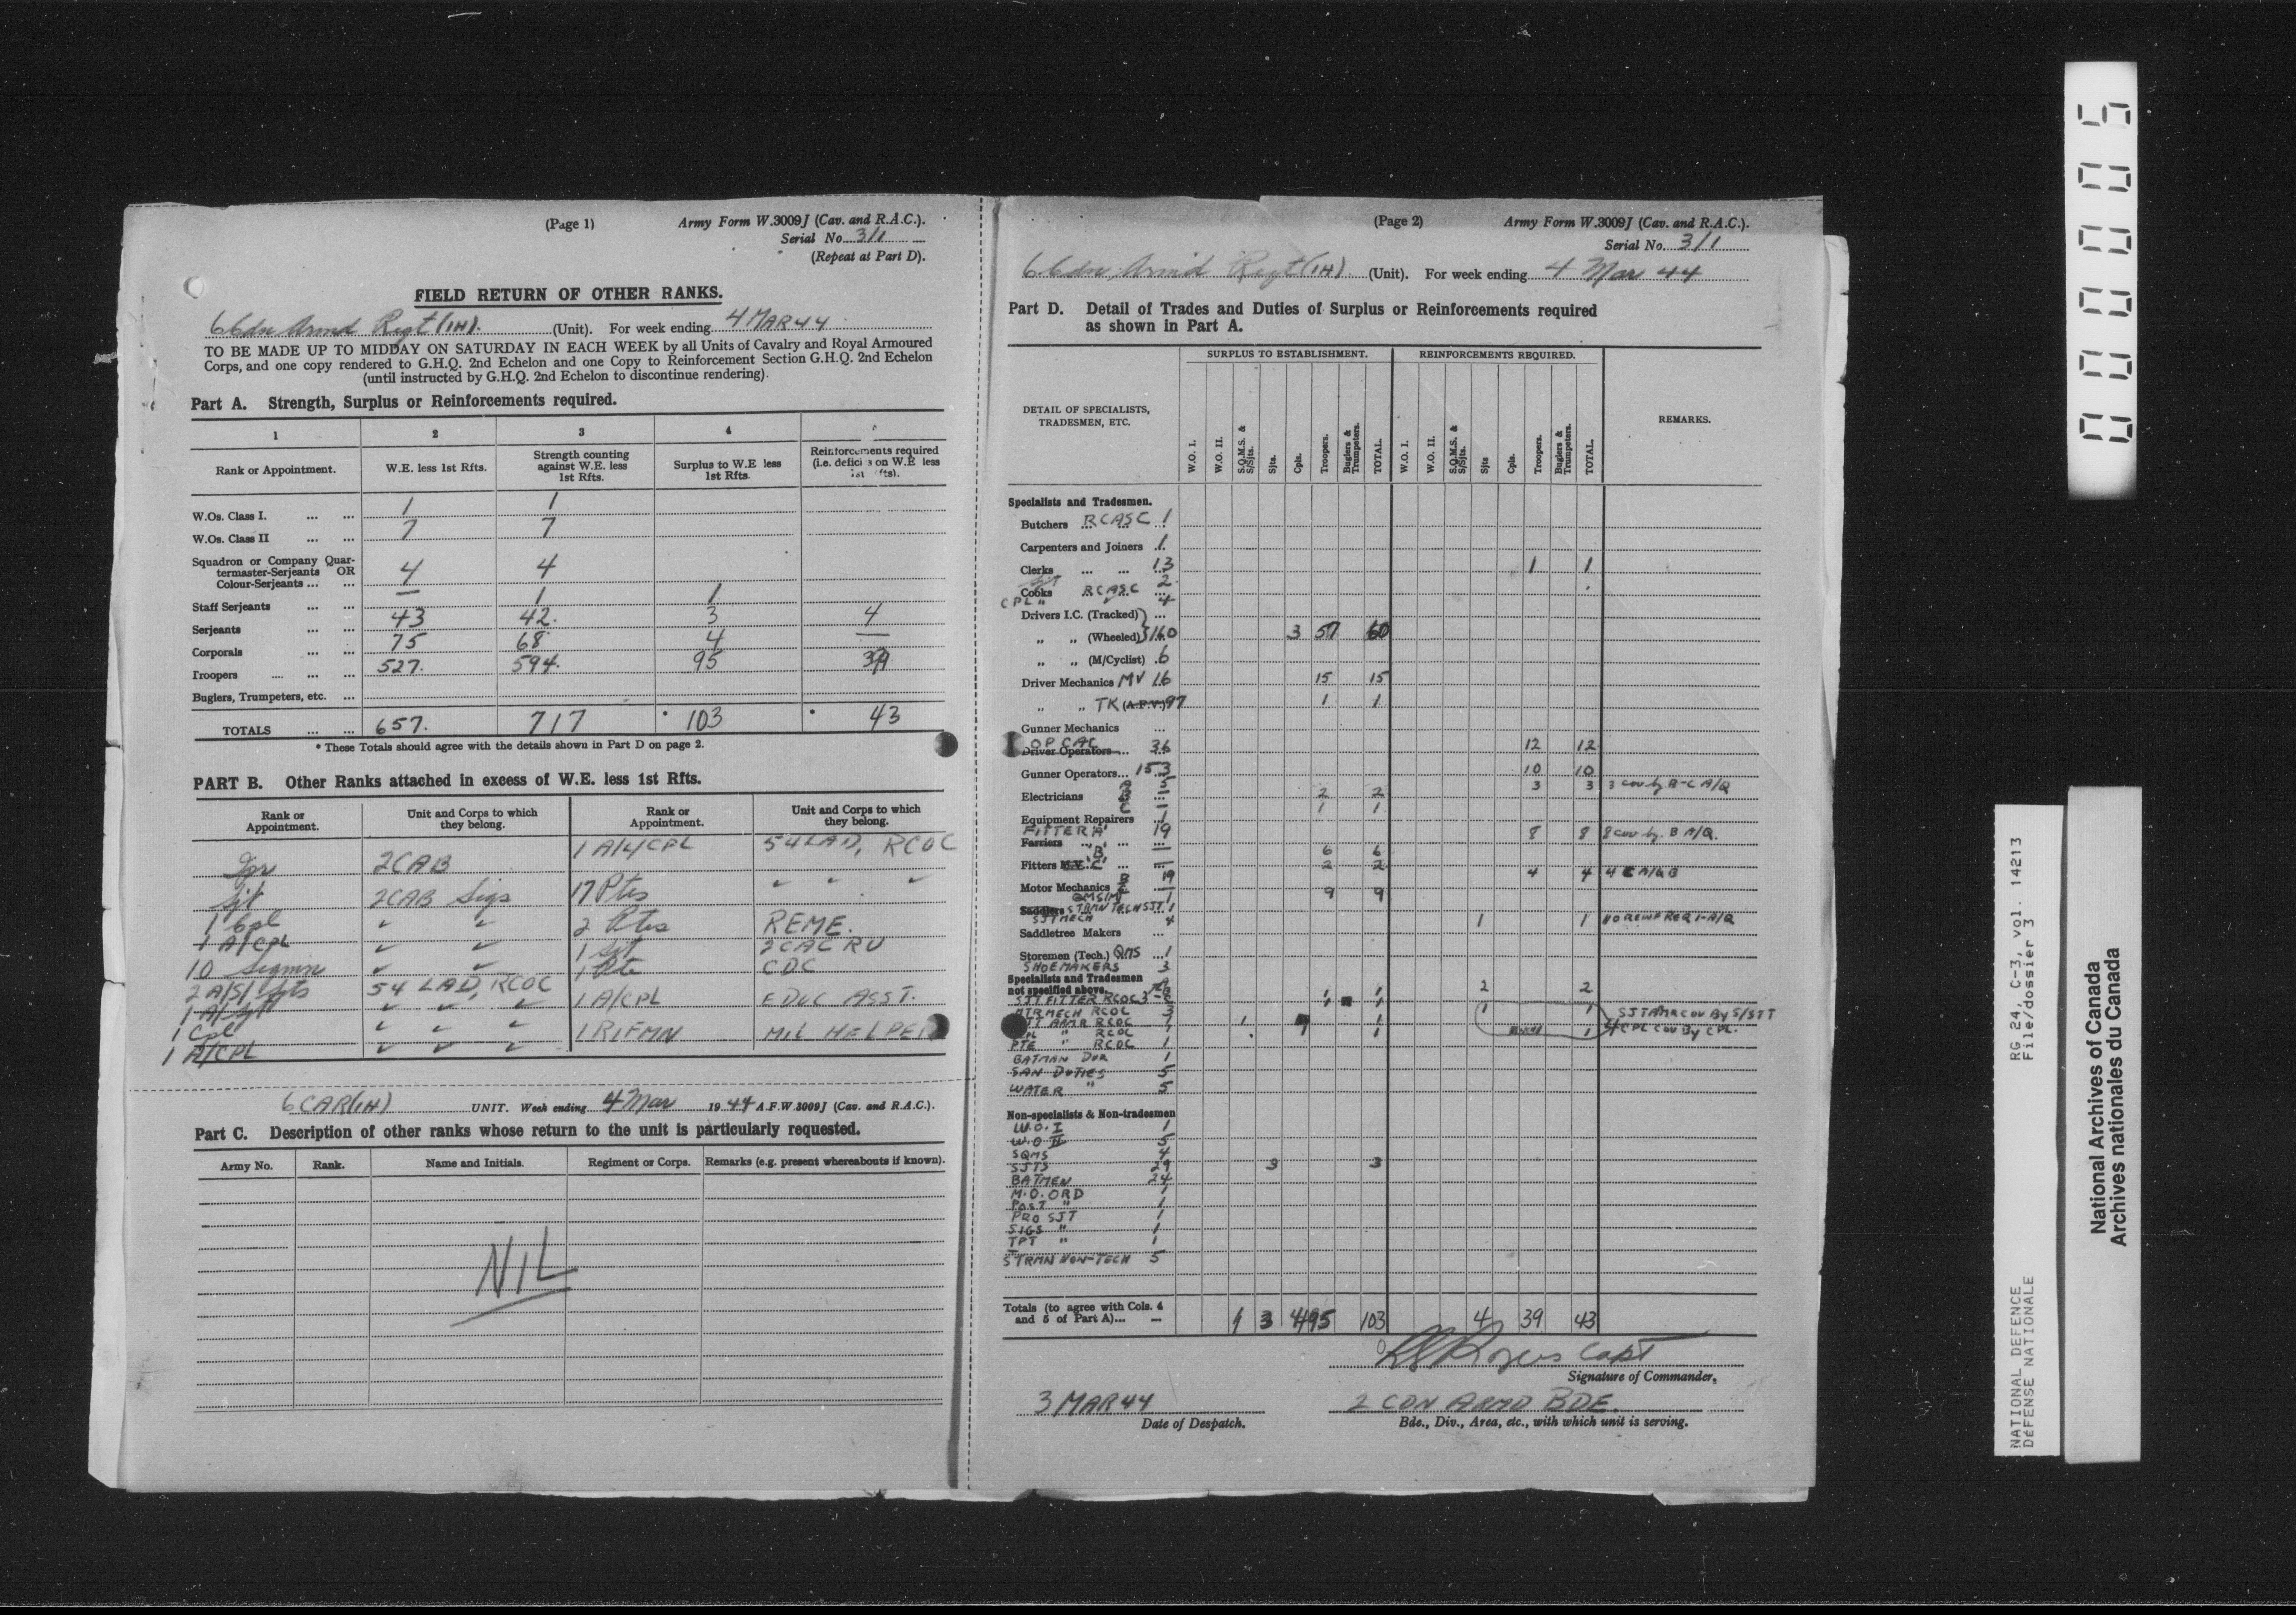 (Page 1) Army Form W.3009J (Cav. and R.A.C.).
Serial No. 3/1
(Repeat at Part D).
FIELD RETURN OF OTHER RANKS.
6 Cdn Armd Regt (1H). (Unit). For week ending 4 MAR 44
TO BE MADE UP TO MIDDAY ON SATURDAY IN EACH WEEK by all Units of Cavalry and Royal Armoured
Corps, and one copy rendered to G.H.Q. 2nd Echelon and one Copy to Reinforcement Section G.H.Q. 2nd Echelon
(until instructed by G.H.Q. 2nd Echelon to discontinue rendering).
Part A. Strength, Surplus or Reinforcements required.
1 2 3 4
Rank or Appointment. W.E. less 1st Rfts. Strength counting against W.E. less 1st Rfts. Surplus to W.E less 1st Rfts. Reinforcements required (i.e. deficits on W.E less 1st Rfts).
W.Os. Class I. ... ... 1 1
W.Os. Class II ... ... 7 7
Squadron or Company Quar-
termaster-Serjeants OR
Colour-Serjeants ... ... 4 4
Staff Serjeants ... ... — 1 1
Serjeants ... ... 43 42. 3 4
Corporals ... ... 75 68 4 —
Troopers ... ... ... 527. 594. 95 39
Buglers, Trumpeters, etc. ...
TOTALS ... ... 657. 717 * 103 * 43
* These Totals should agree with the details shown in Part D on page 2.
PART B. Other Ranks attached in excess of W.E. less 1st Rfts.
Rank or Appointment. Unit and Corps to which they belong. Rank or Appointment. Unit and Corps to which they belong.
Tpr 2CAB 1 A/L/CPL 54 LAD, RCOC
Sjt 2CAB Sigs 17 Ptes " " "
1 Cpl " " 2 Ptes REME.
1 A/CPL " " 1 Sjt 2 CAC RU
10 Sigmn " " 1 Pte CDC
2 A/S/Sjts 54 LAD, RCOC 1 A/CPL EDUC ASST.
1 A/Sjt " " "
1 Cpl " " " 1 RIFMN MIL HELPER
1 A/CPL " " "
6 CAR(1H) UNIT. Week ending 4 Mar 1944 A.F.W.3009J (Cav. and R.A.C.).
Part C. Description of other ranks whose return to the unit is particularly requested.
Army No. Rank. Name and Initials. Regiment or Corps. Remarks (e.g. present whereabouts if known).
NIL
(Page 2) Army Form W.3009J (Cav. and R.A.C.).
Serial No. 3/1
6 Cdn Armd Regt (1H) (Unit). For week ending 4 Mar 44
Part D. Detail of Trades and Duties of Surplus or Reinforcements required
as shown in Part A.
SURPLUS TO ESTABLISHMENT. REINFORCEMENTS REQUIRED.
DETAIL OF SPECIALISTS, TRADESMEN, ETC. W.O. I. W.O. II. S.Q.M.S. & S/Sjts. Sjts. Cpls. Troopers. Buglers & Trumpeters. TOTAL. W.O. I. W.O. II. S.Q.M.S. & S/Sjts. Sjts Cpls. Troopers. Buglers & Trumpeters. TOTAL. REMARKS.
Specialists and Tradesmen.
Butchers RCASC 1
Carpenters and Joiners 1
Clerks ... ... 13 1 1
Cooks RCASC 2
CPL " 4
Drivers I.C. (Tracked) ...
" " (Wheeled) 160 3 57 60
" " (M/Cyclist) 6
Driver Mechanics MV 16 15 15
" " TK (A.F.V.) 97 1 1
Gunner Mechanics ...
OP CAC
Driver Operators ... 36 12 12
Gunner Operators... 153 10 10
A 5 3 3 3 cov by B-C A/Q
Electricians B — 2 2
C — 1 1
Equipment Repairers 1
FITTER 'A' 19 8 8 8 cov by B A/Q.
Farriers ... ...
'B' — 6 6
Fitters M.V. 'C' ... — 2 2
B 19 4 4 4 C A/Q B
Motor Mechanics C — 9 9
QMS(M) 1
Saddlers STRMN TECH SJT 1
SJT MECH 4 1 1 NO REINF REQ 1-A/Q
Saddletree Makers ...
Storemen (Tech.) QMS ... 1
SHOEMAKERS 3
Specialists and Tradesmen
not specified above. 2 2
SJT FITTER RCOC
MTR MECH RCOC 3 1 1 SJT AMR COV BY S/SJT
SJT ARMR RCOC 1 1 1
CPL " RCOC 1 1 1 1 CPL COV BY CPL.
PTE " RCOC 1
BATMAN DVR 1
SAN DUTIES 5
WATER " 5
Non-specialists & Non-tradesmen
W.O. I 1
W.O II 5
SQMS 4
SJTS 29 3 3
BATMEN 24
M.O. ORD 1
POST " 1
PRO SJT 1
SIGS " 1
TPT " 1
STRMN NON-TECH 5
Totals (to agree with Cols. 4
and 5 of Part A)... — 1 3 4 95 103 4 39 43
Rogers Capt
Signature of Commander.
3 MAR 44 2 CDN ARMD BDE.
Date of Despatch. Bde., Div., Area, etc., with which unit is serving.
000005
NATIONAL DEFENCE RG 24, C-3, vol. 14213
DÉFENSE NATIONALE File/dossier 3
National Archives of Canada
Archives nationales du Canada